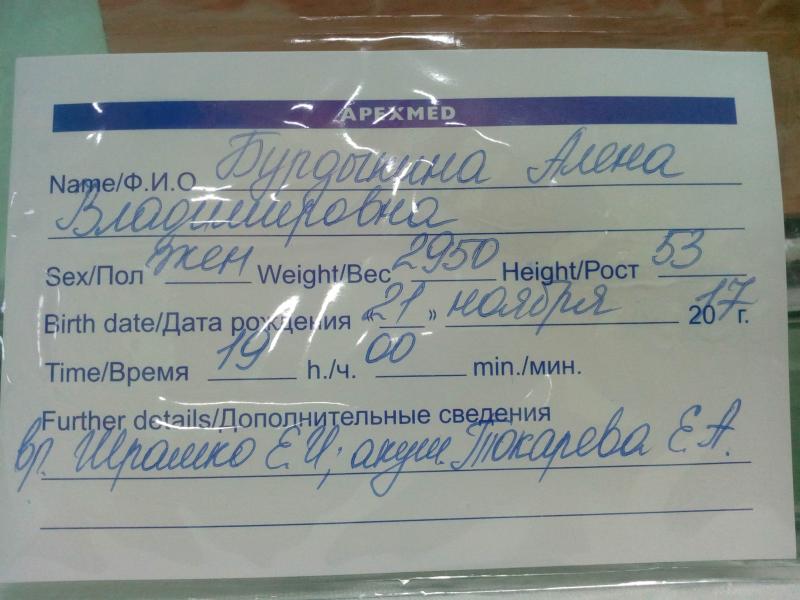 APEXMED
Name/Ф.И.О Бурдыкина Алена
Владимировна
Sex/Пол жен Weight/Вес 2950 Height/Рост 53
Birth date/Дата рождения «21» ноября 2017 г.
Time/Время 19 h./ч. 00 min./мин.
Further details/Дополнительные сведения
вр. Шрамко Е.И; акуш. Токарева Е.А.